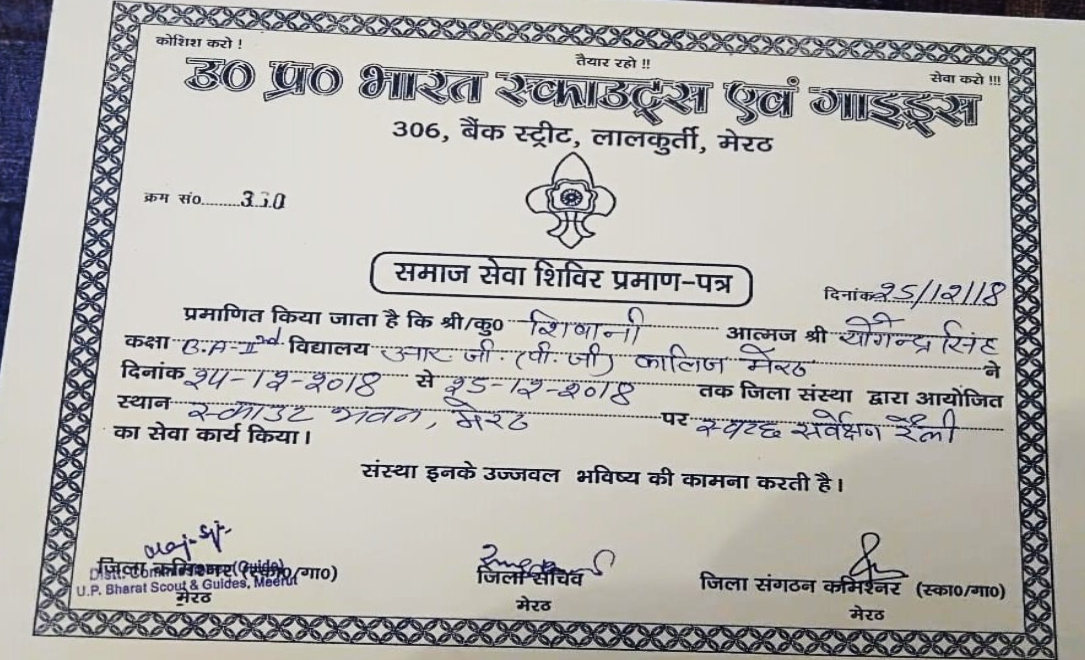 कोशिश करो !
तैयार रहो !!
सेवा करो !!!
उ० प्र० भारत स्काउट्स एवं गाइड्स
306, बैंक स्ट्रीट, लालकुर्ती, मेरठ
क्रम सं०.........330
समाज सेवा शिविर प्रमाण-पत्र
दिनांक 25/12/18
प्रमाणित किया जाता है कि श्री/कु० शिवानी आत्मज श्री योगेन्द्र सिंह
कक्षा B.A-IInd विद्यालय आर. जी. (पी. जी) कालिज मेरठ ने
दिनांक 24-12-2018 से 25-12-2018 तक जिला संस्था द्वारा आयोजित
स्थान स्काउट भवन, मेरठ पर स्वच्छ सर्वेक्षण रैली
का सेवा कार्य किया।
संस्था इनके उज्जवल भविष्य की कामना करती है।
जिला कमिश्नर (स्का०/गा०)
Distt. Commissioner (Guide)
U.P. Bharat Scout & Guides, Meerut
मेरठ
जिला सचिव
मेरठ
जिला संगठन कमिश्नर (स्का०/गा०)
मेरठ